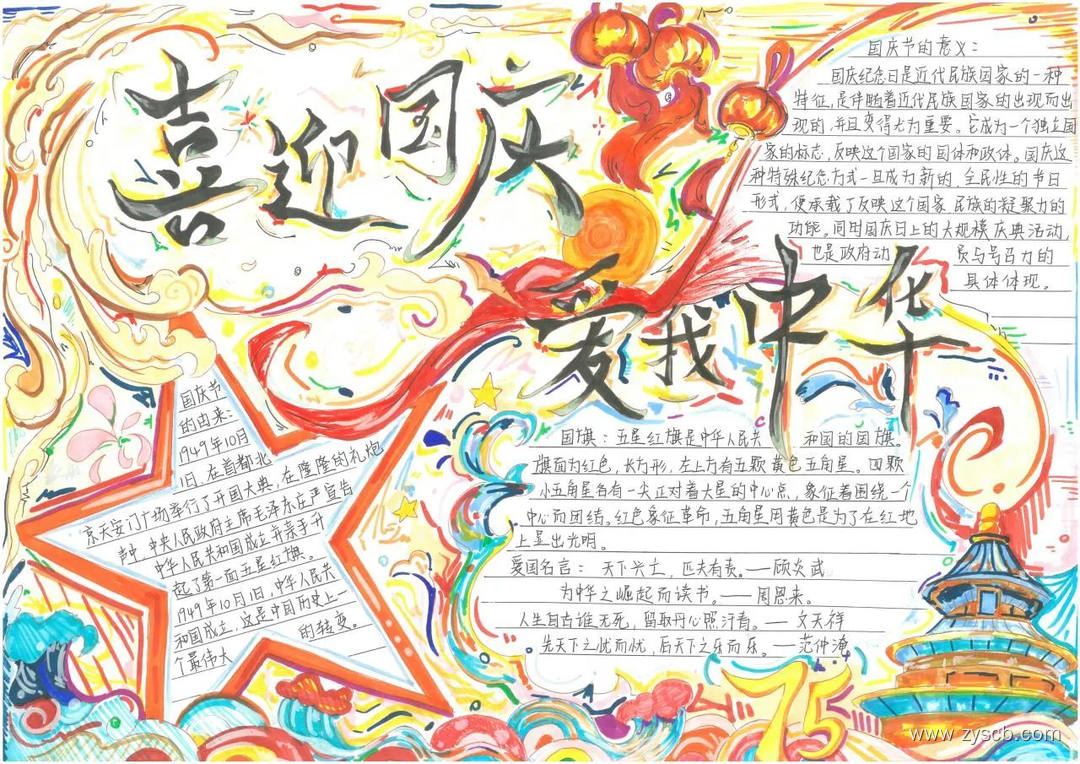 喜迎国庆
爱我中华
国庆节的意义：
国庆纪念日是近代民族国家的一种
特征，是伴随着近代民族国家的出现而出
现的，并且变得尤为重要。它成为一个独立国
家的标志，反映这个国家的国体和政体。国庆这
种特殊纪念方式一旦成为新的、全民性的节日
形式，便承载了反映这个国家、民族的凝聚力的
功能。同时国庆日上的大规模庆典活动，
也是政府动 员与号召力的
具体体现。
国庆节
的由来：
1949年10月
1日，在首都北
京天安门广场举行了开国大典，在隆隆的礼炮
声中，中央人民政府主席毛泽东庄严宣告
中华人民共和国成立并亲手升
起了第一面五星红旗。
1949年10月1日，中华人民共
和国成立，这是中国历史上一
个最伟大 的转变。
国旗：五星红旗是中华人民共 和国的国旗。
旗面为红色，长方形，左上方有五颗黄色五角星。四颗
小五角星各有一尖正对着大星的中心点，象征着围绕一个
中心而团结。红色象征革命，五角星用黄色是为了在红地
上显出光明。
爱国名言：天下兴亡，匹夫有责。——顾炎武
为中华之崛起而读书。——周恩来。
人生自古谁无死，留取丹心照汗青。——文天祥
先天下之忧而忧，后天下之乐而乐。——范仲淹
75
www.zyscb.com